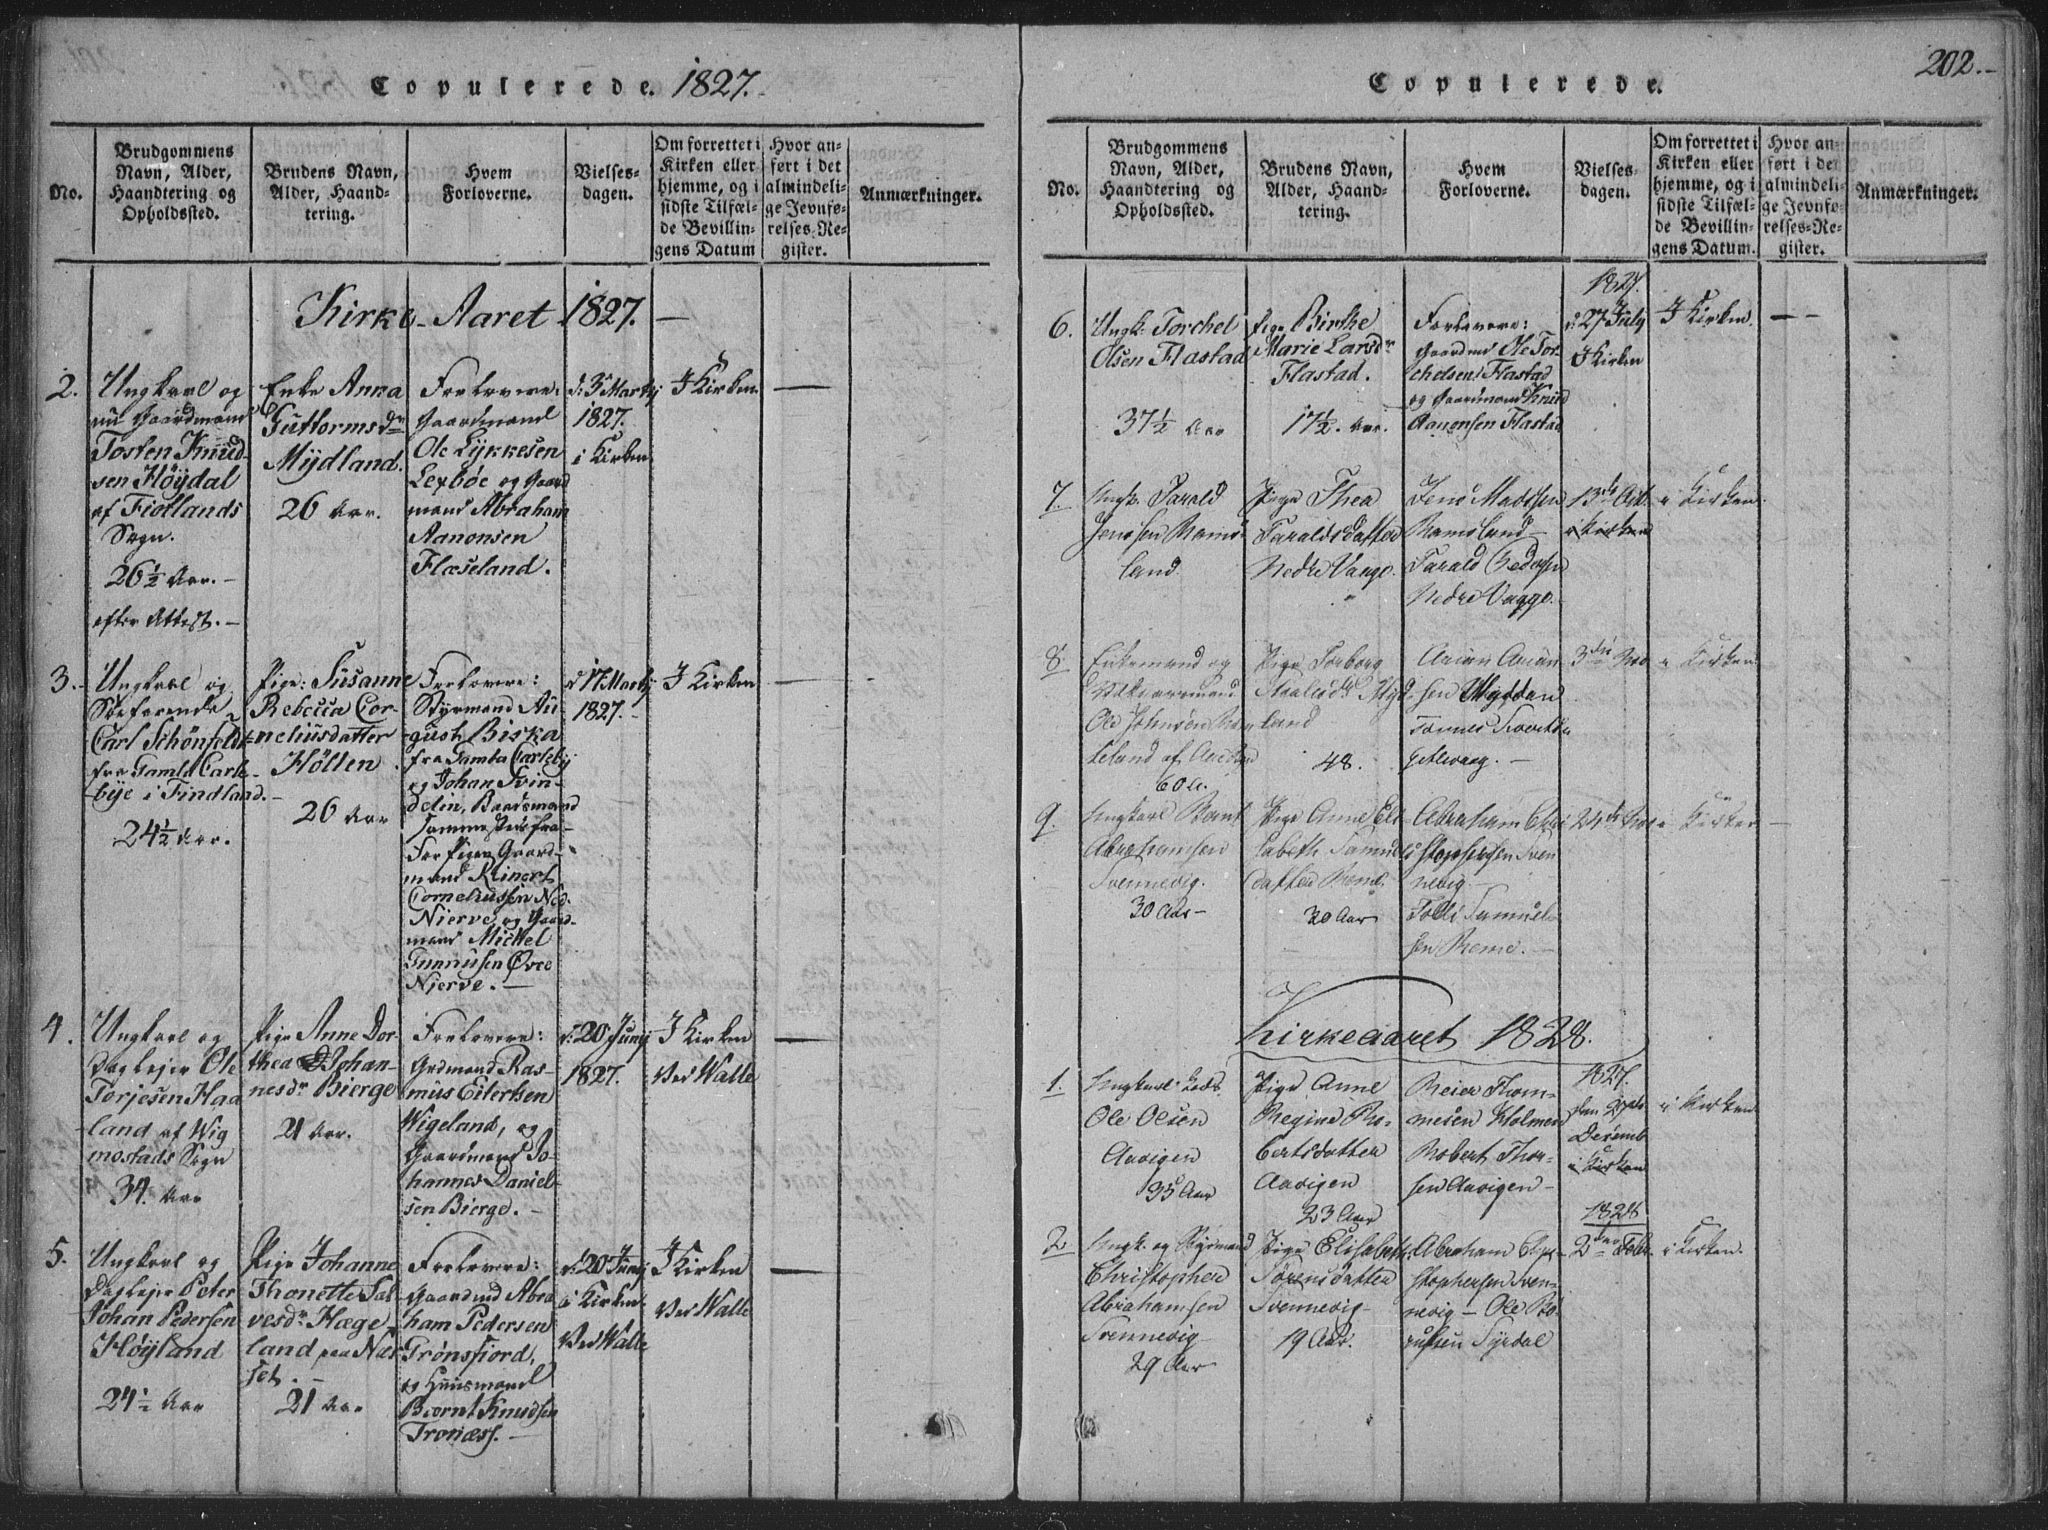 Copulerede. 1827.
No.
Brudgommens
Navn, Alder,
Haandtering og
Opholdssted.
Brudens Navn,
Alder, Haand-
tering.
Hvem
Forloverne.
Vielses-
dagen.
Om forrettet i
Kirken eller
hjemme, og i
sidste Tilfæl-
de Bevillin-
gens Datum
Hvor an-
ført i det
almindeli-
ge Jevnfø-
relses-Re-
gister.
Anmærkninger.
Kirke-Aaret 1827.
2.
Ungkarl og
nu Gaardmand
Tosten Knud-
sen Höydal
af Fiotlands
Sogn.
26½ Aar.
efter Attest.
Enke Anna
Guttormsdr
Mydland.
26 Aar.
Forlovere:
Gaardmand
Ole Lykkesen
Lexbøe og Gaard
mand Abraham
Aanonsen
Flæseland.
d: 3 Martij
1827.
i Kirken
I Kirken
3.
Ungkarl og
Söefarende
Carl Schönfeldt
fra Gamla Carle-
bye i Findland.
24½ Aar.
Pige: Susanne
Rebecca Cor-
neliusdatter
Hölten
26 Aar
Forlovere:
Styrmand Au-
gust Biska
fra Gamla Carleby
og Johan Svin-
delin, Baadsmand
sammesteds fra
For Pigen Gaard-
mand Reinert
Corneliussen Ned.
Njerve, og Gaard-
mand Michel
Gunnusen Øvre
Njerve.
d 17 Martij
1827.
I Kirken
4.
Ungkarl og
Daglejer Ole
Torjesen Haa
land af Wig
mostads Sogn
34. Aar
Pige Anne Dor-
thea Johan-
nesdr Bierge
21 Aar.
Forlovere:
Grdmand Ras-
mus Eilertsen
Wigeland, og
Gaardmand Jo-
hannes Daniel-
sen Bierge.
d: 20 Junij
1827.
I Kirken
Ved Walle
5.
Ungkarl og
Daglejer Peter
Johan Pedersen
Höyland
24½ Aar
Pige Johanne
Thonette Sal-
vesdr Hæge
land paa Næs
set.
21 Aar
Forlovere:
Gaardmd Abra
ham Pedersen
Trønsfiord,
og Huusmand
Biørnt Knudsen
Tronæss.
d: 20 Junij
i Kirken
Ved Walle
I Kirken
Ved Walle
202.
Copulerede.
No.
Brudgommens
Navn, Alder,
Haandtering og
Opholdssted.
Brudens Navn,
Alder, Haand-
tering.
Hvem
Forloverne.
Vielses-
dagen.
Om forrettet i
Kirken eller
hjemme, og i
sidste Tilfæl-
de Bevillin-
gens Datum.
Hvor an-
ført i det
almindeli-
ge Jevnfø-
relses-Re-
gister.
Anmærkninger.
6.
Ungk. Torchel
Olsen Flastad
37½ Aar
Pige Birthe
Marie Larsdr
Flastad.
17½. Aar.
Forlovere:
Gaardmd Ole Tor-
chelsen Flastad
og Gaardmand Knud
Aanonsen Flastad
1827.
d: 27 July
I Kirken
I Kirken.
7.
Ungk. Tarald
Jenssen Rams-
land
Pige Thea
Taraldsdatter
Nedre Vaage
Jens Madssen
Ramsland
Tarald Pedersen
Nedre Vagge.
13de Oct.
i Kirken
i Kirken.
8
Enkemand og
Ole Johnsen
60
Pige Torborg
land
48.
Arian Arian
sen
3die Nov
i Kirken
9.
Ungkarl Bernt
Abrahamsen
Svennevig.
30 Aar
Pige Anne Eli-
sabeth Samuels
datter Reme.
30 Aar
Abraham Chri
stophersen Sven
nevig.
Tolli Samuel-
sen Reme.
24de Nov
i Kirken
Kirkeaaret 1828.
1.
Ungkarl
Ole Olsen
Aavigen
35 Aar
Pige Anne
Regine Ro-
bertsdatter
Aavigen
23 Aar
Reier Thom-
mesen Holmen
Robert Thor-
sen Aavigen
1827.
den 27de
Decemb
i Kirken
i Kirken
2
Ungk. og Styrmand
Christopher
Abrahamsen
Svennevig
29 Aar
Pige Elisabeth
Sørensdatter
Svennevig
19 Aar.
Abraham Chri-
stophersen Sven-
nevig - Ole
Syrdal
1828
2den Febr
i Kirken.